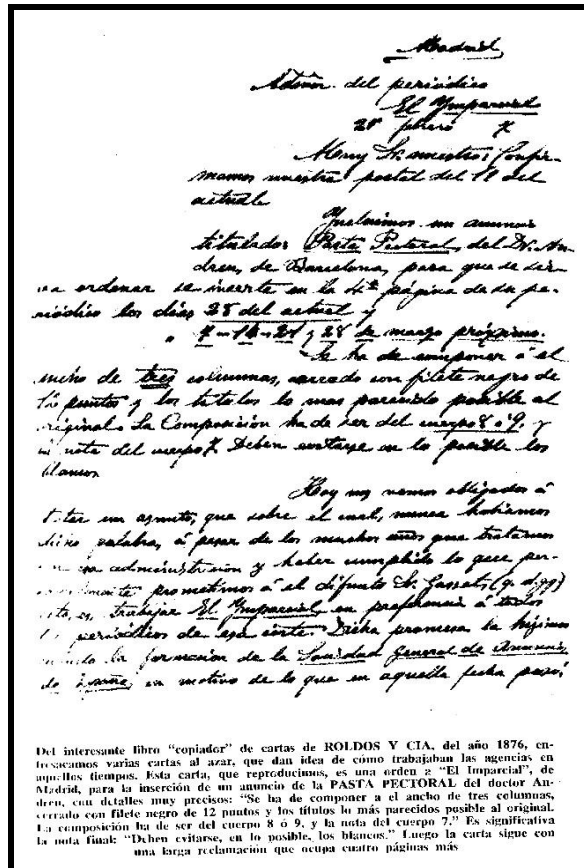 Madrid
Admón. del periódico
El Imparcial
28 febrero 7
Muy Sr. nuestro: Confir-
mamos nuestra postal del 18 del
actual.
Incluimos un anuncio
titulado: Pasta Pectoral, del Dr. An-
dreu, de Barcelona, para que se sir-
va ordenar se inserte en la 4ª página de su pe-
riódico los días 28 del actual y
" 7-14-21 y 28 de marzo próximo.
Se ha de componer á el
ancho de tres columnas, cerrado con filete negro de
12 puntos y los títulos lo mas parecido posible al
original. La Composición ha de ser del cuerpo 8 ó 9, y
nota del cuerpo 7. Deben evitarse en lo posible los
blancos
Hoy nos vemos obligados á
tratar un asunto, que sobre el cual, nunca habíamos
dicho palabra, á pesar de los muchos años que tratamos
administracion y haber cumplido lo que per-
prometimos á el difunto Sr. Gasset, (q. d. g. g)
trabajar El Imparcial en preferencia á todos
periódicos de esa corte. Dicha promesa la hicimos
la formacion de la Sociedad General de Anuncios
de España, en motivo de lo que en aquella fecha pasó;
Del interesante libro "copiador" de cartas de ROLDOS Y CIA. del año 1876, en-
tresacamos varias cartas al azar, que dan idea de cómo trabajaban las agencias en
aquellos tiempos. Esta carta, que reproducimos, es una orden a "El Imparcial", de
Madrid, para la inserción de un anuncio de la PASTA PECTORAL del doctor An-
dreu, con detalles muy precisos: "Se ha de componer a el ancho de tres columnas,
cerrado con filete negro de 12 puntos y los títulos lo más parecidos posible al original.
La composición ha de ser del cuerpo 8 ó 9, y la nota del cuerpo 7." Es significativa
la nota final: "Deben evitarse, en lo posible, los blancos." Luego la carta sigue con
una larga reclamación que ocupa cuatro páginas más